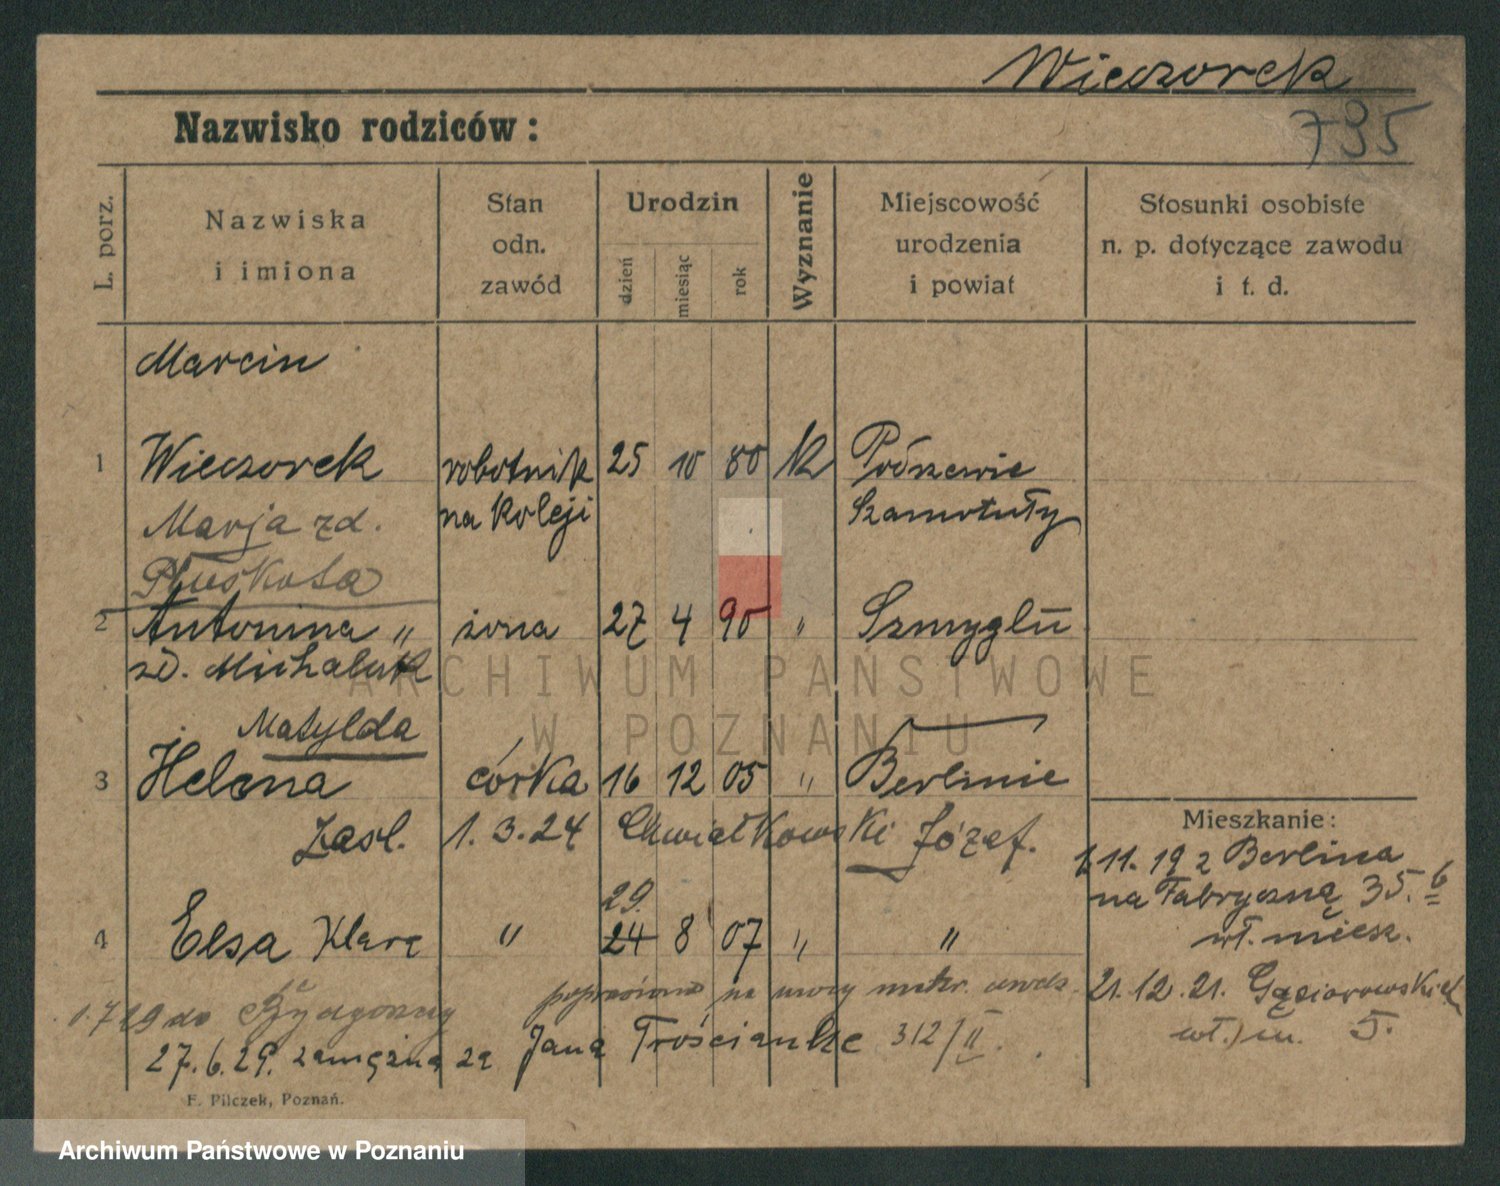 Wieczorek
Nazwisko rodziców:
795
L. porz.
Nazwiska
i imiona
Stan
odn.
zawód
Urodzin
dzień
miesiąc
rok
Wyznanie
Miejscowość
urodzenia
i powiat
Stosunki osobiste
n. p. dotyczące zawodu
i t. d.
Marcin
1 Wieczorek robotnik 25 10 80 k
na koleji Szamotuły
Marja zd.
Pluskota
2 Antonina " żona 27 4 90 "
zd. Michalak
Matylda
3 Helena córka 16 12 05 " Berlinie
zasl. 1.3.24 Chwiałkowski Józef.
Mieszkanie:
11.19 z Berlina
na Fabryczną 35. 6
wł. miesz.
29.
4 Elsa Klara " 24 8 07 " "
21.12.21. Gąsiorowskich
wł. m. 5.
1.7 19 do Bydgoszczy
27.6.29. zamężna za Jana Trościanke 312/II.
F. Pilczek, Poznań.
ARCHIWUM PAŃSTWOWE
W POZNANIU
Archiwum Państwowe w Poznaniu